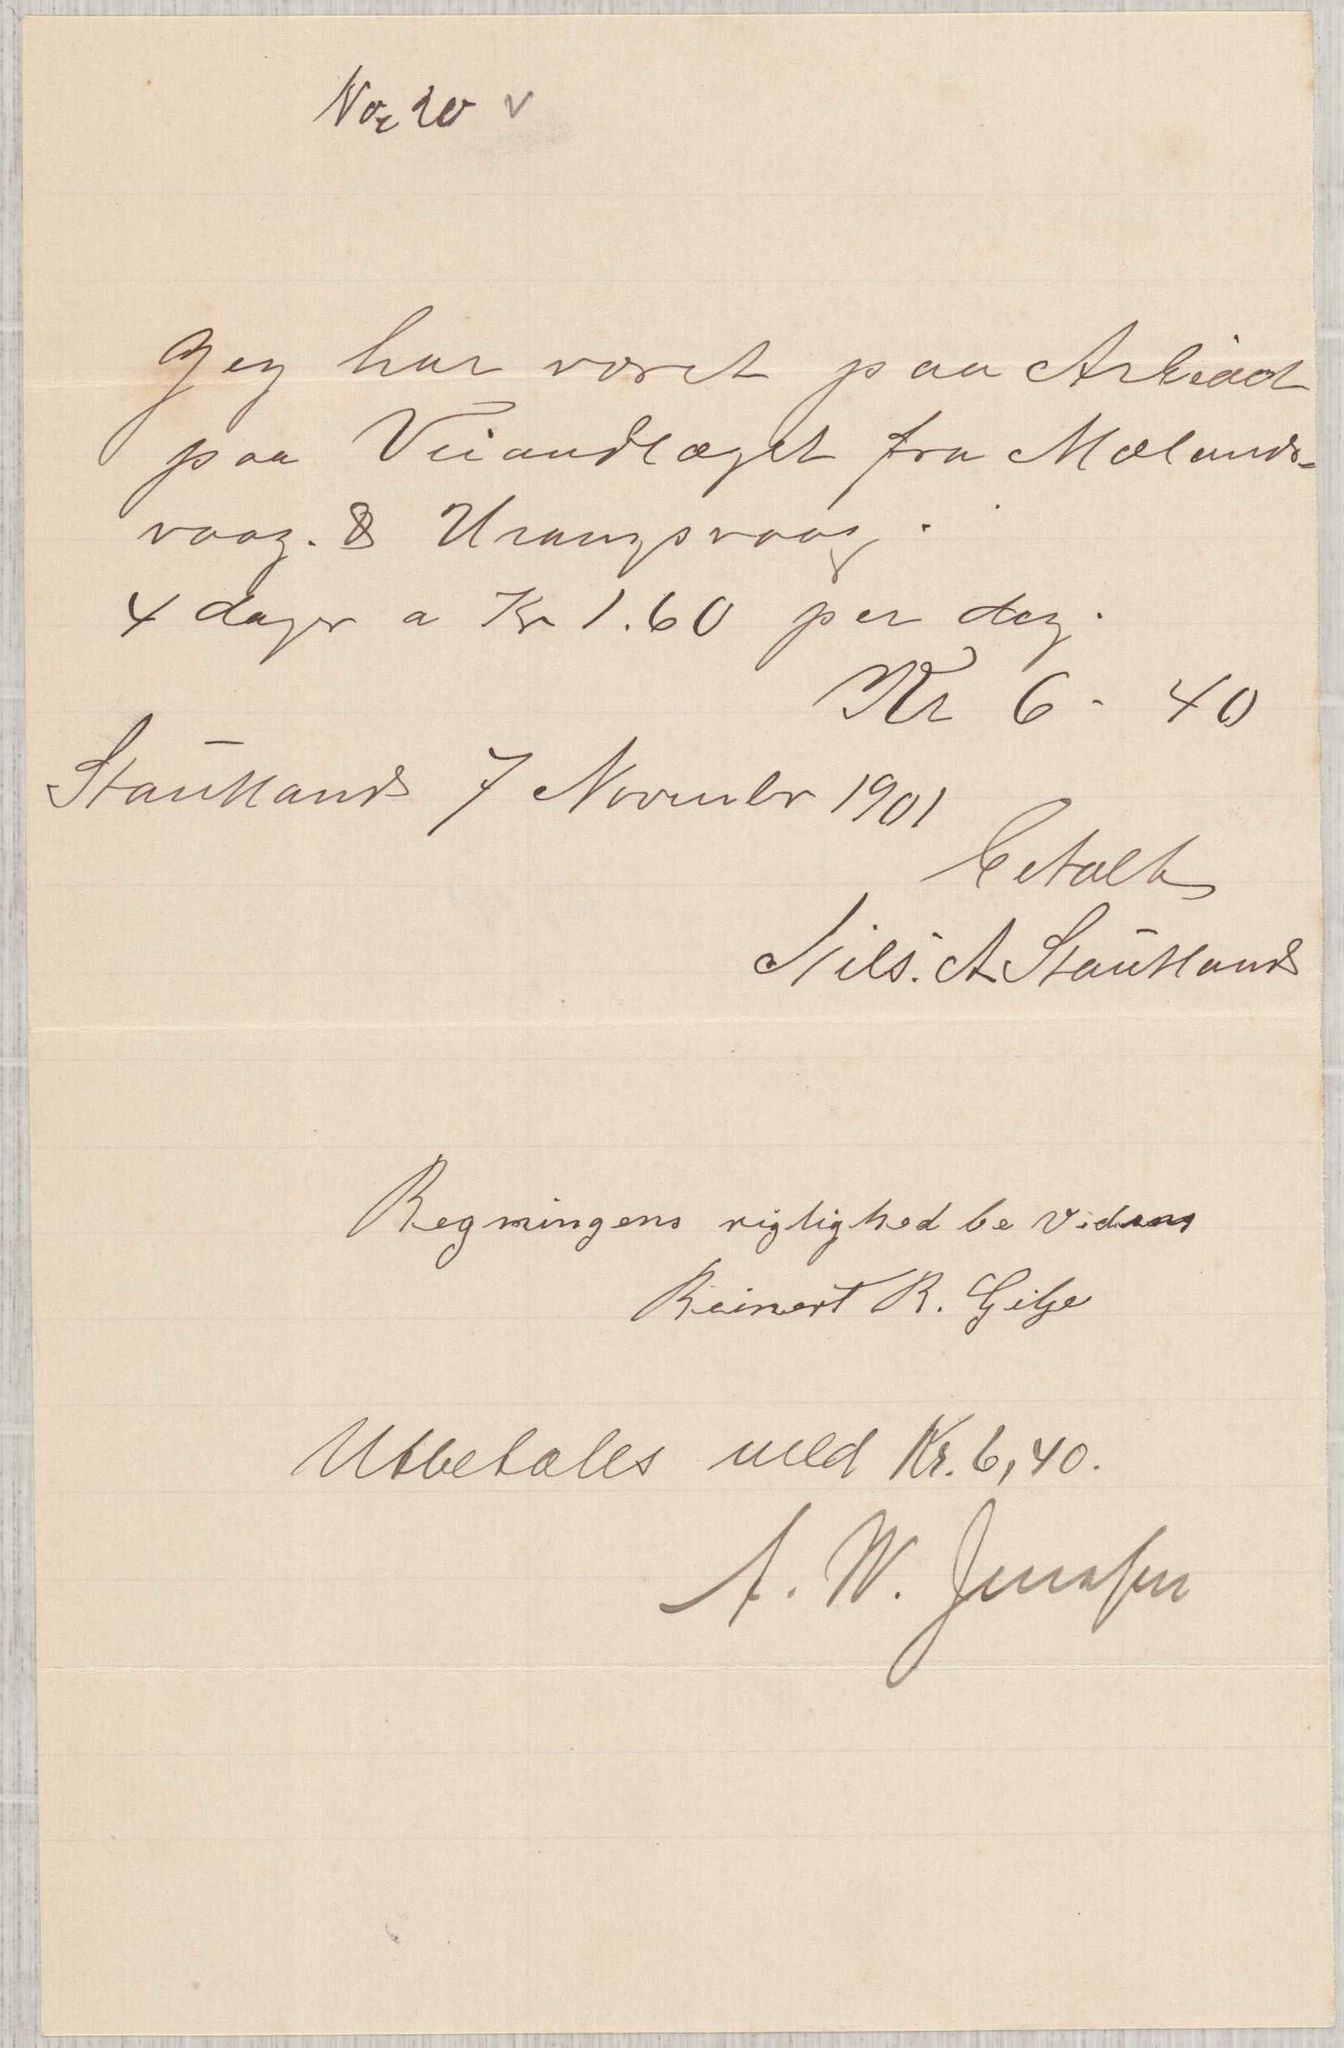 No 20 v
Jeg har været paa Arbeidet
paa Veianlæget fra Mælands-
vaag. & Urangsvaag.
4 dager a Kr 1.60 per dag.
Kr 6 - 40
Stautland 7 November 1901
betalt
Nils. A Stautland
Regningens rigtighed bevidnes
Reinert R. Gilje
Utbetales med Kr. 6,40.
A. W. Jenssen